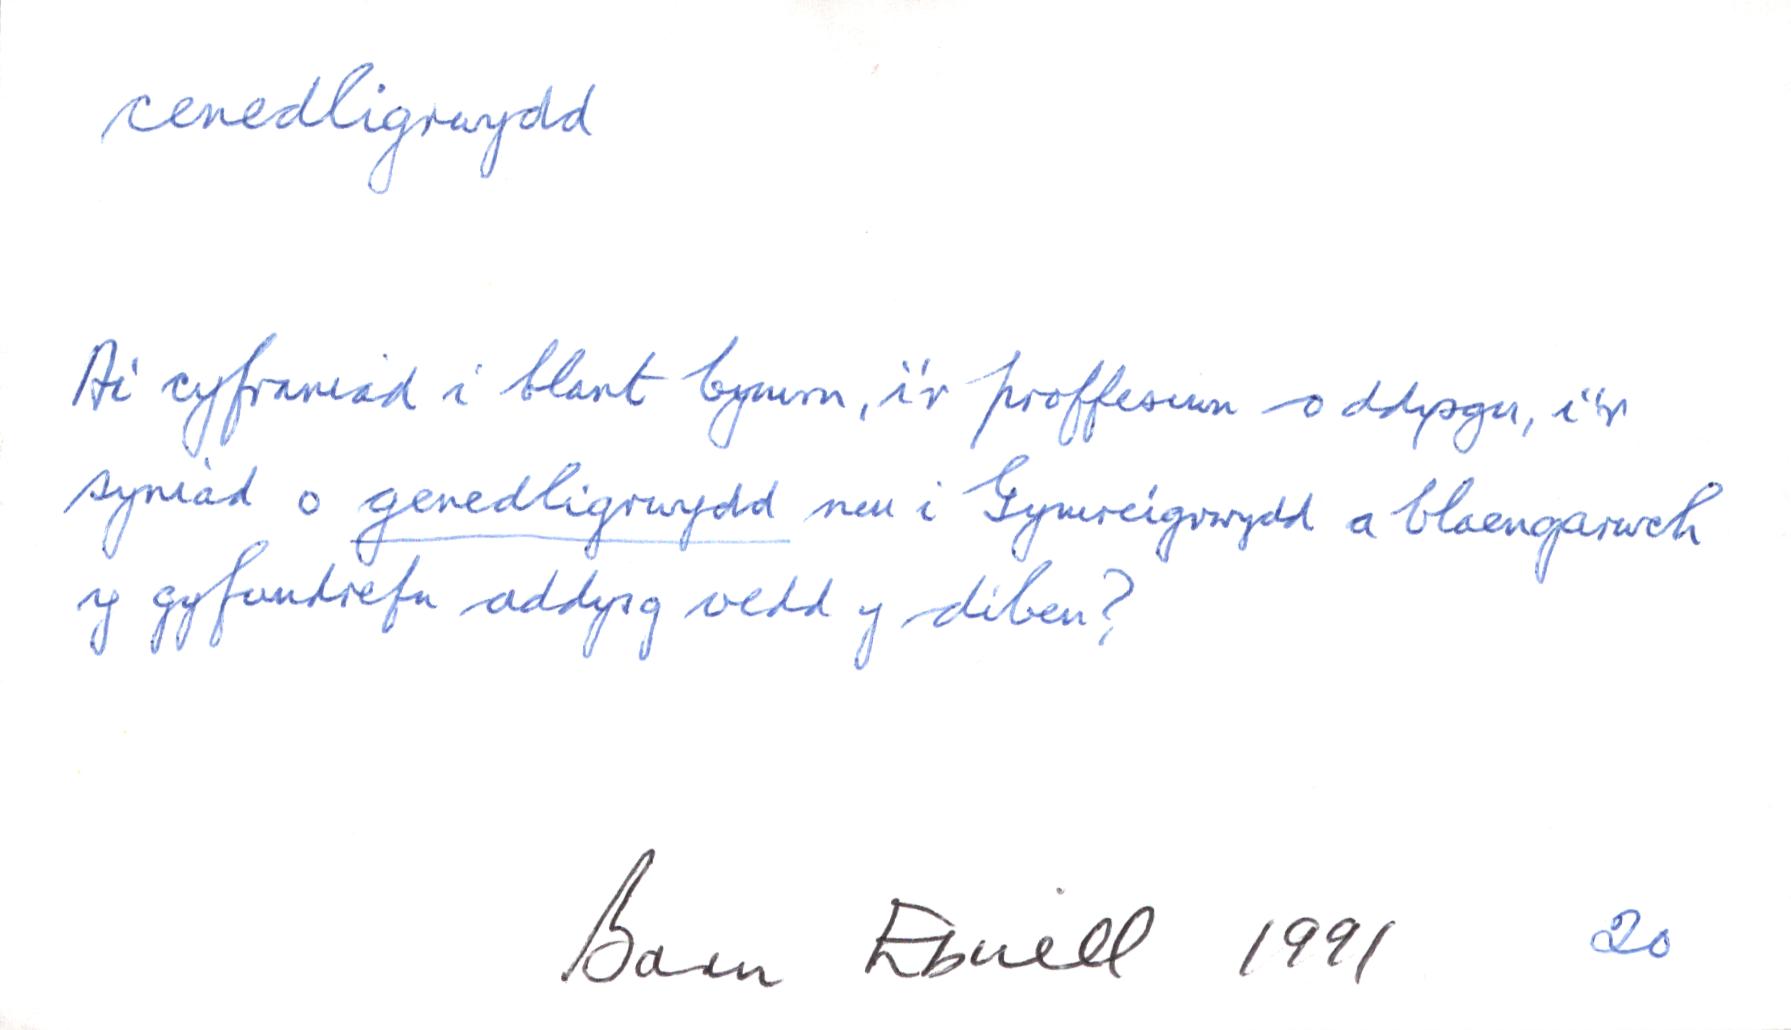 cenedligrwydd
Ai cyfraniad i blant bymm, i'r proffesiwn o ddysgu, i'r
syniad o genedligrwydd neu i Gymreigrwydd a blaengarwch
y gyfundrefn addysg oedd y diben?
Barn Ebrill 1991 20